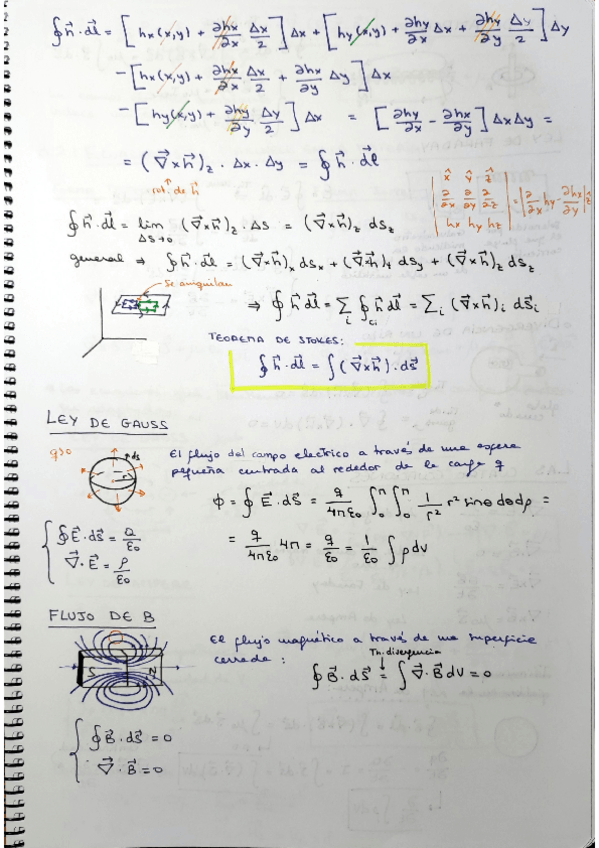 ∮h⃗·dl⃗ = [hx(x,y) + ∂hx/∂x Δx/2]Δx + [hy(x,y) + ∂hy/∂x Δx + ∂hy/∂y Δy/2]Δy
-[hx(x,y) + ∂hx/∂x Δx/2 + ∂hx/∂y Δy]Δx
-[hy(x,y) + ∂hy/∂y Δy/2]Δx = [∂hy/∂x - ∂hx/∂y]ΔxΔy =
= (∇⃗xh⃗)z · Δx·Δy = ∮h⃗·dl⃗
rot. de h⃗
|x̂ ŷ ẑ|
|∂/∂x ∂/∂y ∂/∂z| = |∂/∂x hy - ∂hx/∂y|ẑ
|hx hy hz|
∮h⃗·dl⃗ = lim Δs→0 (∇⃗xh⃗)z · Δs = (∇⃗xh⃗)z dsz
general ⇒ ∮h⃗·dl⃗ = (∇⃗xh⃗)x dsx + (∇⃗xh⃗)y dsy + (∇⃗xh⃗)z dsz
Se aniquilan
⇒ ∮h⃗dl⃗ = ∑i ∮ci h⃗dl⃗ = ∑i (∇⃗xh⃗)i ds⃗i
TEOREMA DE STOKES:
∮h⃗·dl⃗ = ∫(∇⃗xh⃗)·ds⃗
LEY DE GAUSS
q>0
ds
El flujo del campo electrico a través de una esfera
pequeña centrada alrededor de la carga q
ϕ = ∮E⃗·ds⃗ = q/4πε₀ ∫₀^π ∫₀^π 1/r² r² sinθ dθdρ =
= q/4πε₀ 4π = q/ε₀ = 1/ε₀ ∫ρdv
{ ∮E⃗·ds⃗ = Q/ε₀
∇⃗·E⃗ = ρ/ε₀
FLUJO DE B
S N
El flujo magnético a través de una superficie
cerrada:
Th. divergencia
∮B⃗·ds⃗ = ∫∇⃗·B⃗dv = 0
{ ∮B⃗·ds⃗ = 0
∇⃗·B⃗ = 0